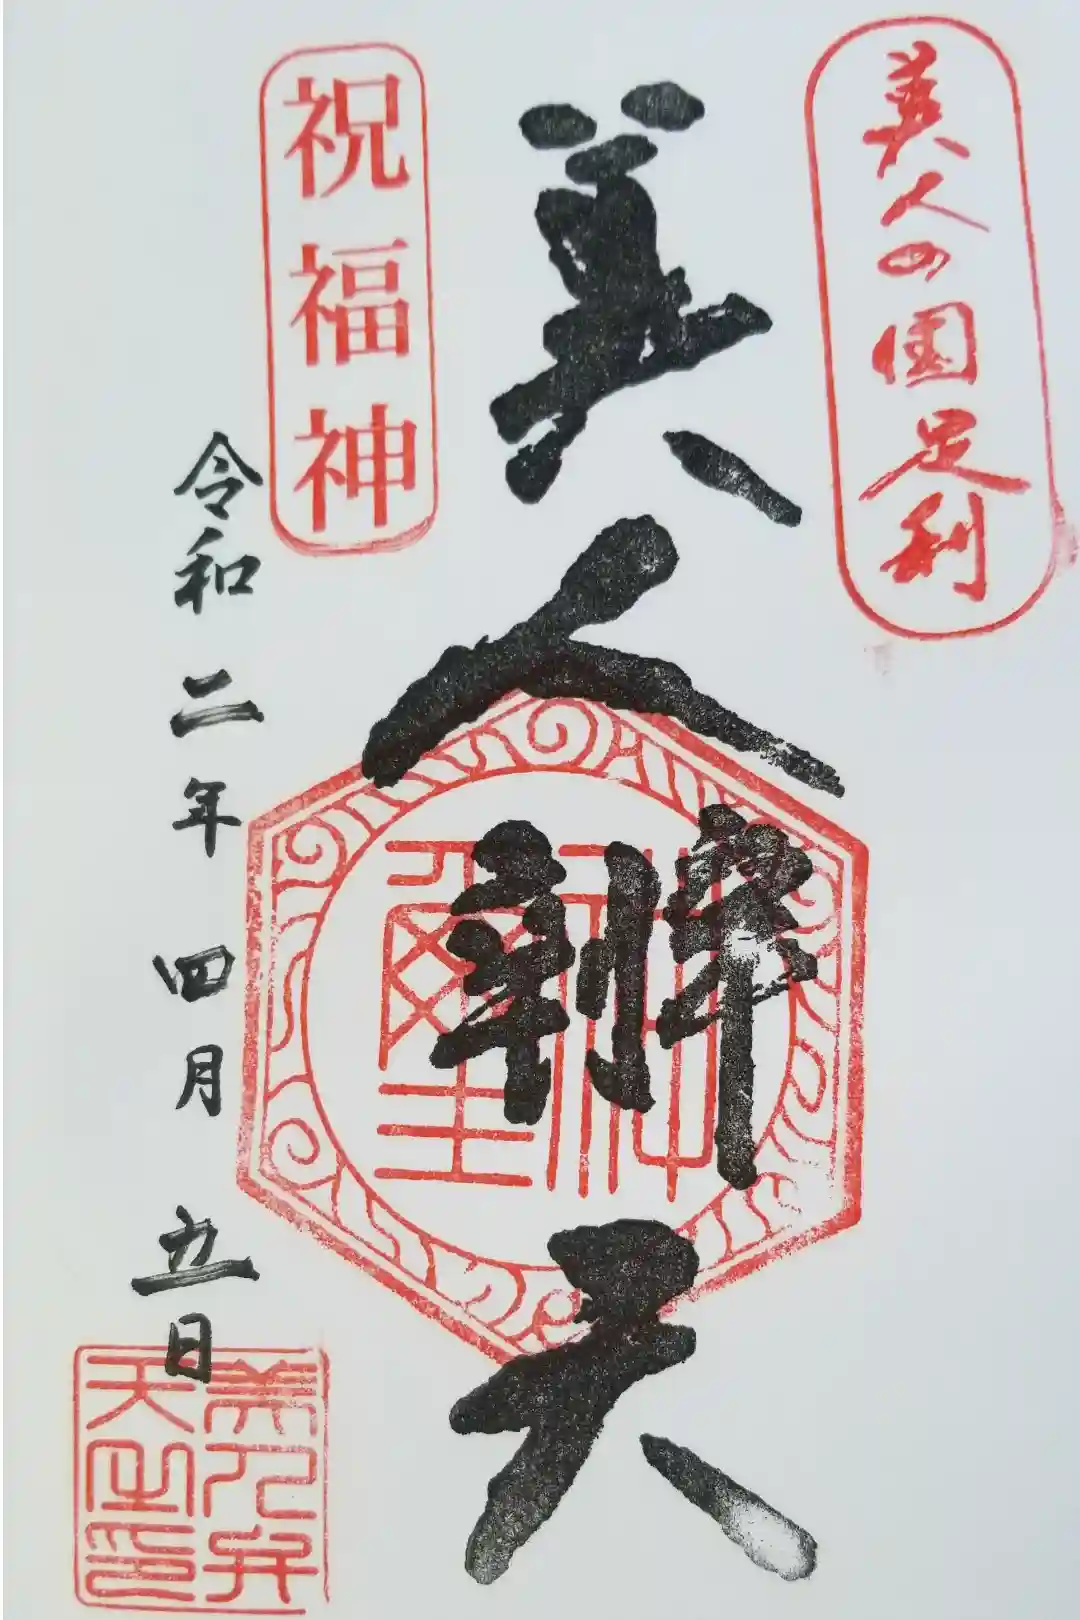 美人の國足利
美人辨天
祝福神
令和二年四月五日
神璽
美人弁天之印